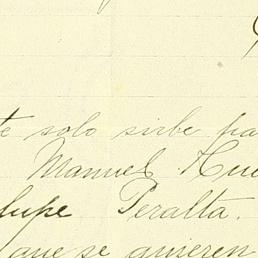 te solo sirbe pa
Manuel Hue
lupe Peralta.
que se quieren